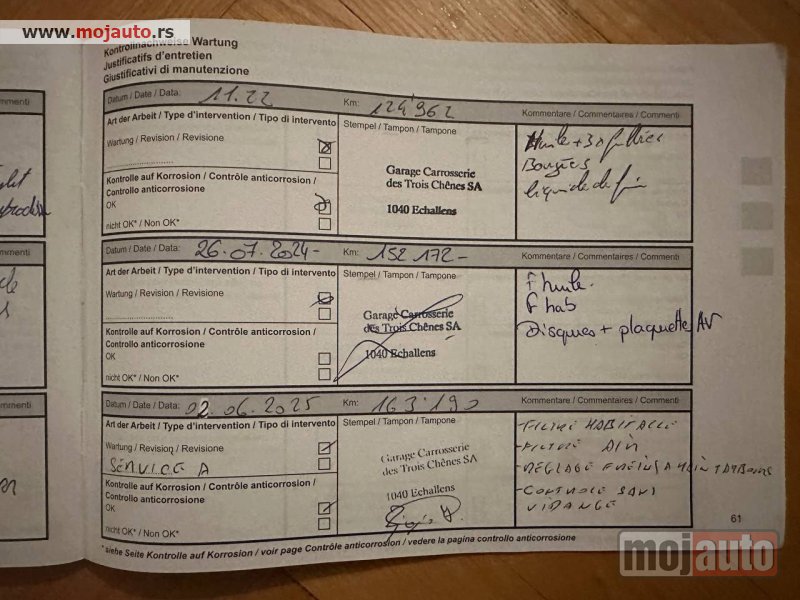 www.mojauto.rs
Kontrollnachweise Wartung
Justificatifs d'entretien
Giustificativi di manutenzione
mmenti
Datum / Date / Data: 11.22 Km: 124'962 Kommentare / Commentaires / Commenti
Art der Arbeit / Type d'intervention / Tipo di intervento Stempel / Tampon / Tampone
Wartung / Revision / Revisione
Huile + 3 filtres
Bougies
liquide de frein
Kontrolle auf Korrosion / Contrôle anticorrosion /
Controllo anticorrosione
OK
nicht OK* / Non OK*
Garage Carrosserie
des Trois Chênes SA
1040 Echallens
mmenti
Datum / Date / Data: 26.07.2024- Km: 152 172- Kommentare / Commentaires / Commenti
Art der Arbeit / Type d'intervention / Tipo di intervento Stempel / Tampon / Tampone
Wartung / Revision / Revisione
F huile.
F hab
Disques + plaquettes AV
Kontrolle auf Korrosion / Contrôle anticorrosion /
Controllo anticorrosione
OK
nicht OK* / Non OK*
Garage Carrosserie
des Trois Chênes SA
1040 Echallens
mmenti
Datum / Date / Data: 02.06.2025 Km: 163'190 Kommentare / Commentaires / Commenti
Art der Arbeit / Type d'intervention / Tipo di intervento Stempel / Tampon / Tampone
Wartung / Revision / Revisione
SERVICE A
Kontrolle auf Korrosion / Contrôle anticorrosion /
Controllo anticorrosione
OK
nicht OK* / Non OK*
Garage Carrosserie
des Trois Chênes SA
1040 Echallens
- FILTRE HABITACLE
- FILTRE AIR
- REGLAGE FREINS A MAIN TAMBOURS
- CONTROLE SANS
VIDANGE
61
* siehe Seite Kontrolle auf Korrosion / voir page Contrôle anticorrosion / vedere la pagina controllo anticorrosione
mojauto